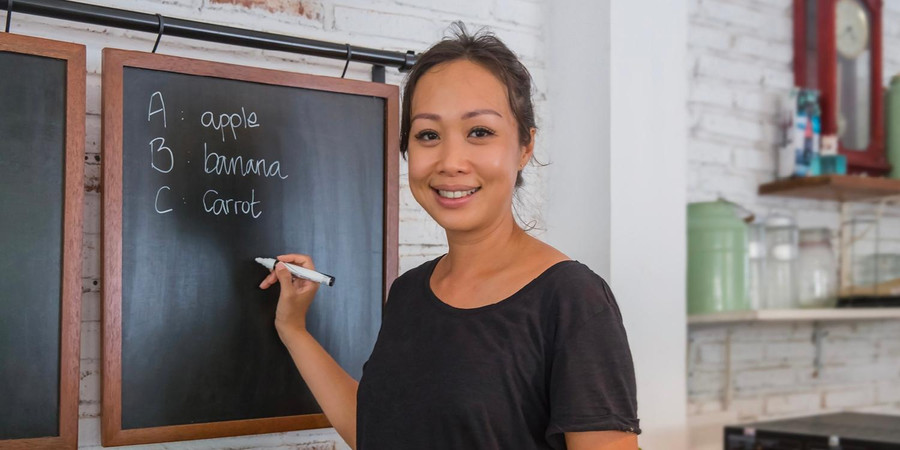 A : apple
B : banana
C : carrot